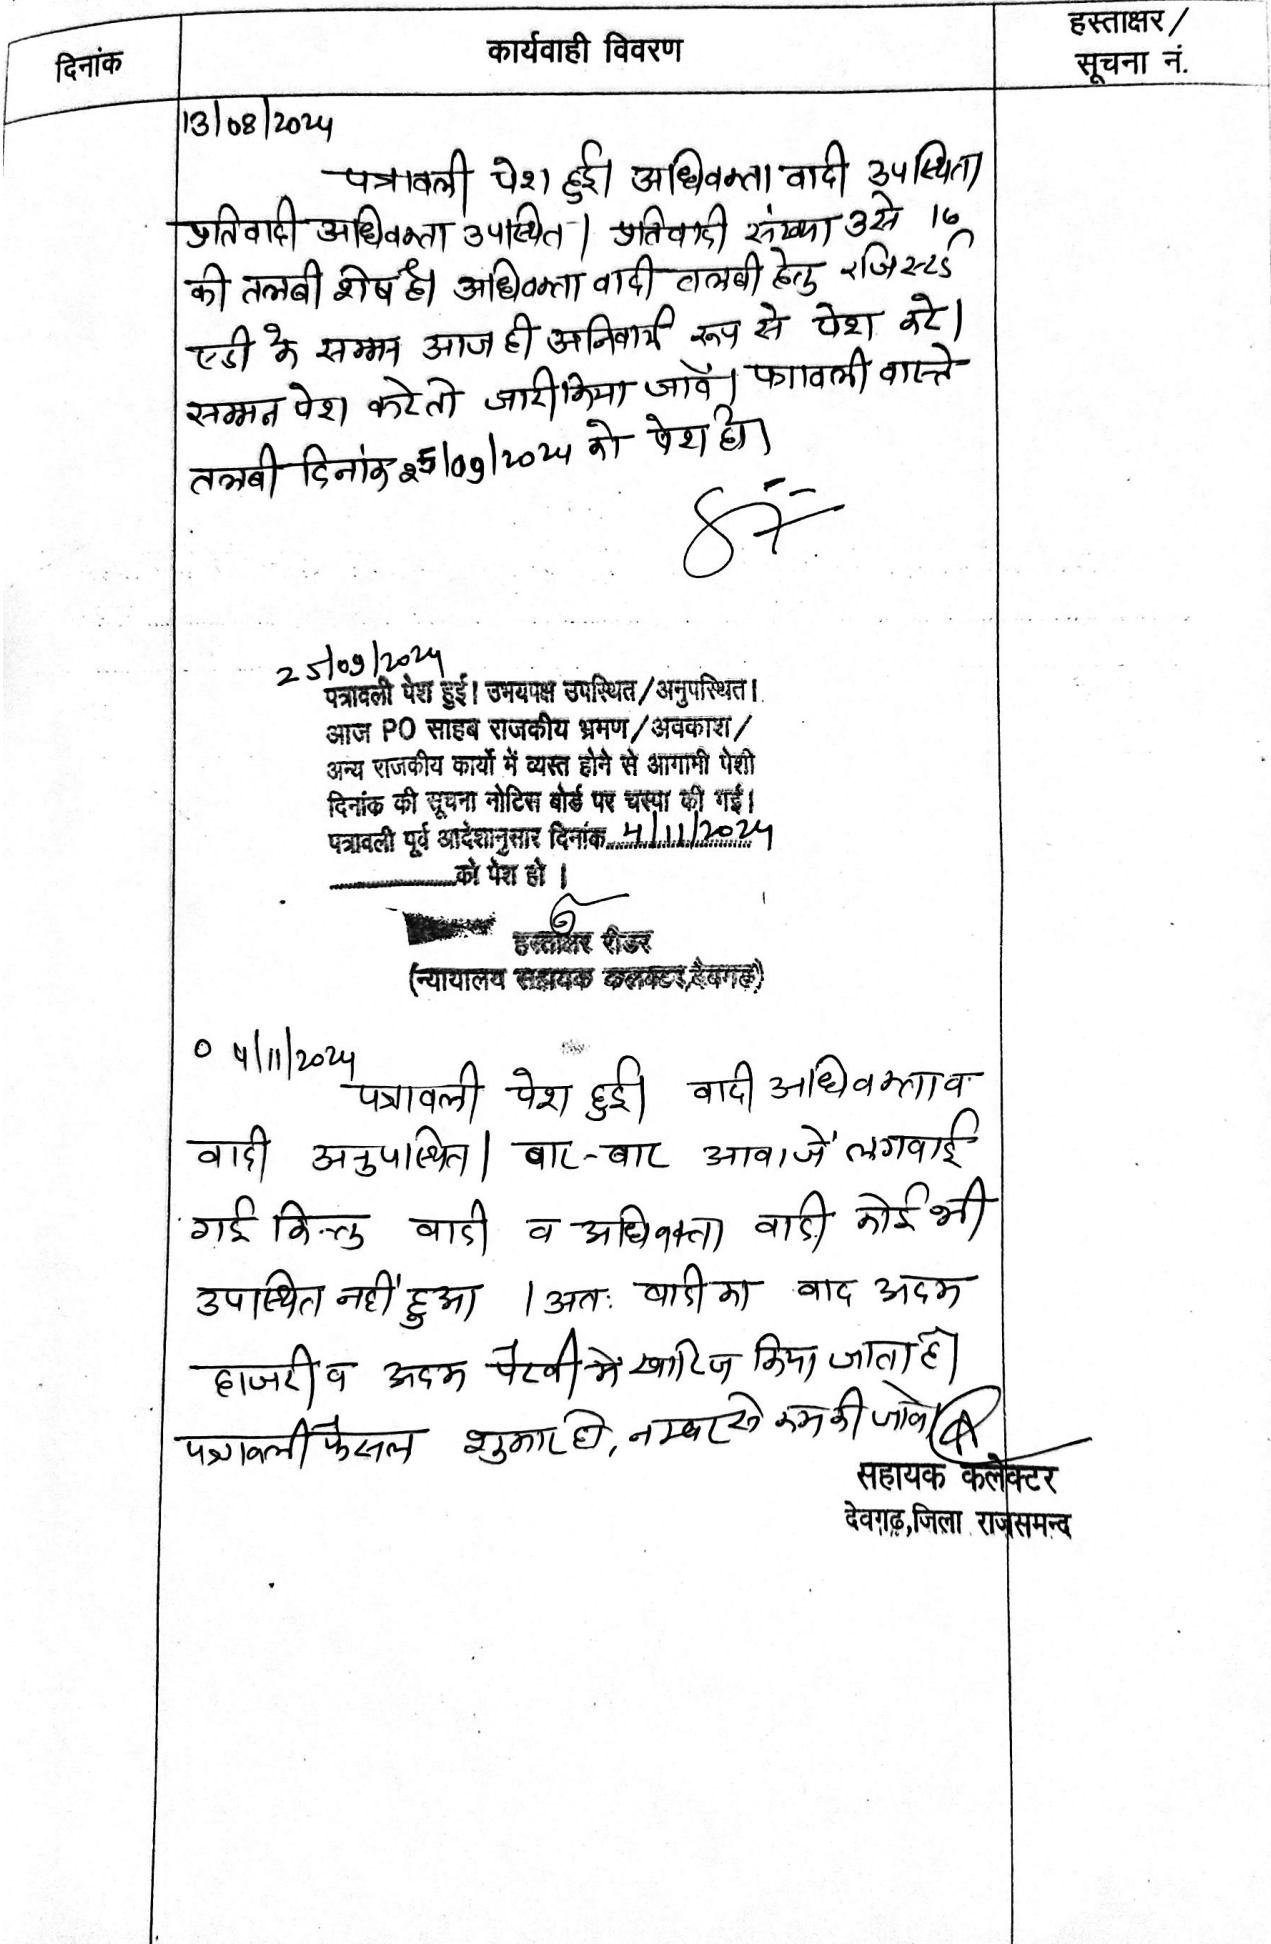 दिनांक
कार्यवाही विवरण
हस्ताक्षर/
सूचना नं.
13/08/2024
पत्रावली पेश हुई। अधिवक्ता वादी उपस्थित।
प्रतिवादी अधिवक्ता उपस्थित। प्रतिवादी संख्या 3 से 16
की तलबी शेष है। अधिवक्ता वादी तलबी हेतु रजिस्टर्ड
एडी के सम्मन आज ही अनिवार्य रूप से पेश करे।
सम्मन पेश करे तो जारी किया जावें। पत्रावली वास्ते
तलबी दिनांक 25/09/2024 को पेश हो।
25/09/2024
पत्रावली पेश हुई। उभयपक्ष उपस्थित/अनुपस्थित।
आज PO साहब राजकीय भ्रमण/अवकाश/
अन्य राजकीय कार्यो में व्यस्त होने से आगामी पेशी
दिनांक की सूचना नोटिस बोर्ड पर चस्पा की गई।
पत्रावली पूर्व आदेशानुसार दिनांक 4/11/2024
को पेश हो ।
हस्ताक्षर रीडर
(न्यायालय सहायक कलक्टर,देवगढ)
04/11/2024
पत्रावली पेश हुई। वादी अधिवक्ता व
वादी अनुपस्थित। बार-बार आवाजें लगवाई
गई किन्तु वादी व अधिवक्ता वादी कोई भी
उपस्थित नहीं हुआ । अतः वादी का वाद अदम
हाजरी व अदम पैरवी में खारिज किया जाता है।
पत्रावली फैसल शुमार हो, नम्बर से कम की जावे।
सहायक कलेक्टर
देवगढ़,जिला राजसमन्द